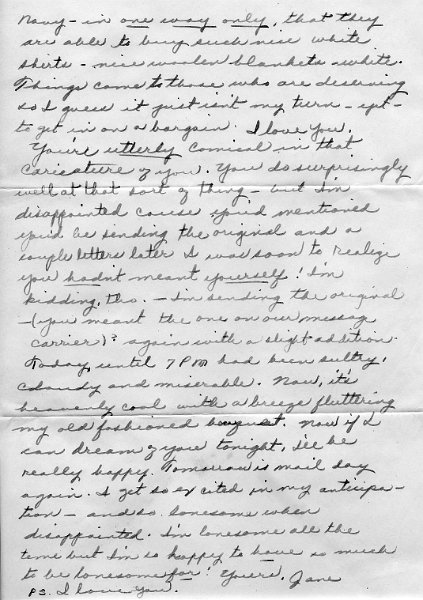 Navy - in one way only, that they
are able to buy such nice white
shirts - nice woolen blankets - white.
Things come to those who are deserving
so I guess it just isn't my turn - ypt -
to get in on a bargain. I love you.
You're utterly comical in that
caricature of you. You do surprisingly
well at that sort of thing - but I'm
disappointed cause you'd mentioned
you'd be sending the original and a
couple letters later I was soon to realize
you hadn't meant yourself! I'm
kidding, tho. - I'm sending the original
- (you meant the one on our message
carrier)? again with a slight addition.
Today, until 7 PM had been sultry,
cloudy and miserable. Now, it's
heavenly cool with a breeze fluttering
my old fashioned bouquet. Now if I
can dream of you tonight, I'll be
really happy. Tomorrow is mail day
again. I get so excited in my anticipa-
tion - and so lonesome when
disappointed. I'm lonesome all the
time but I'm so happy to have so much
to be lonesome for! Yours, Jane
P.S. I love you.